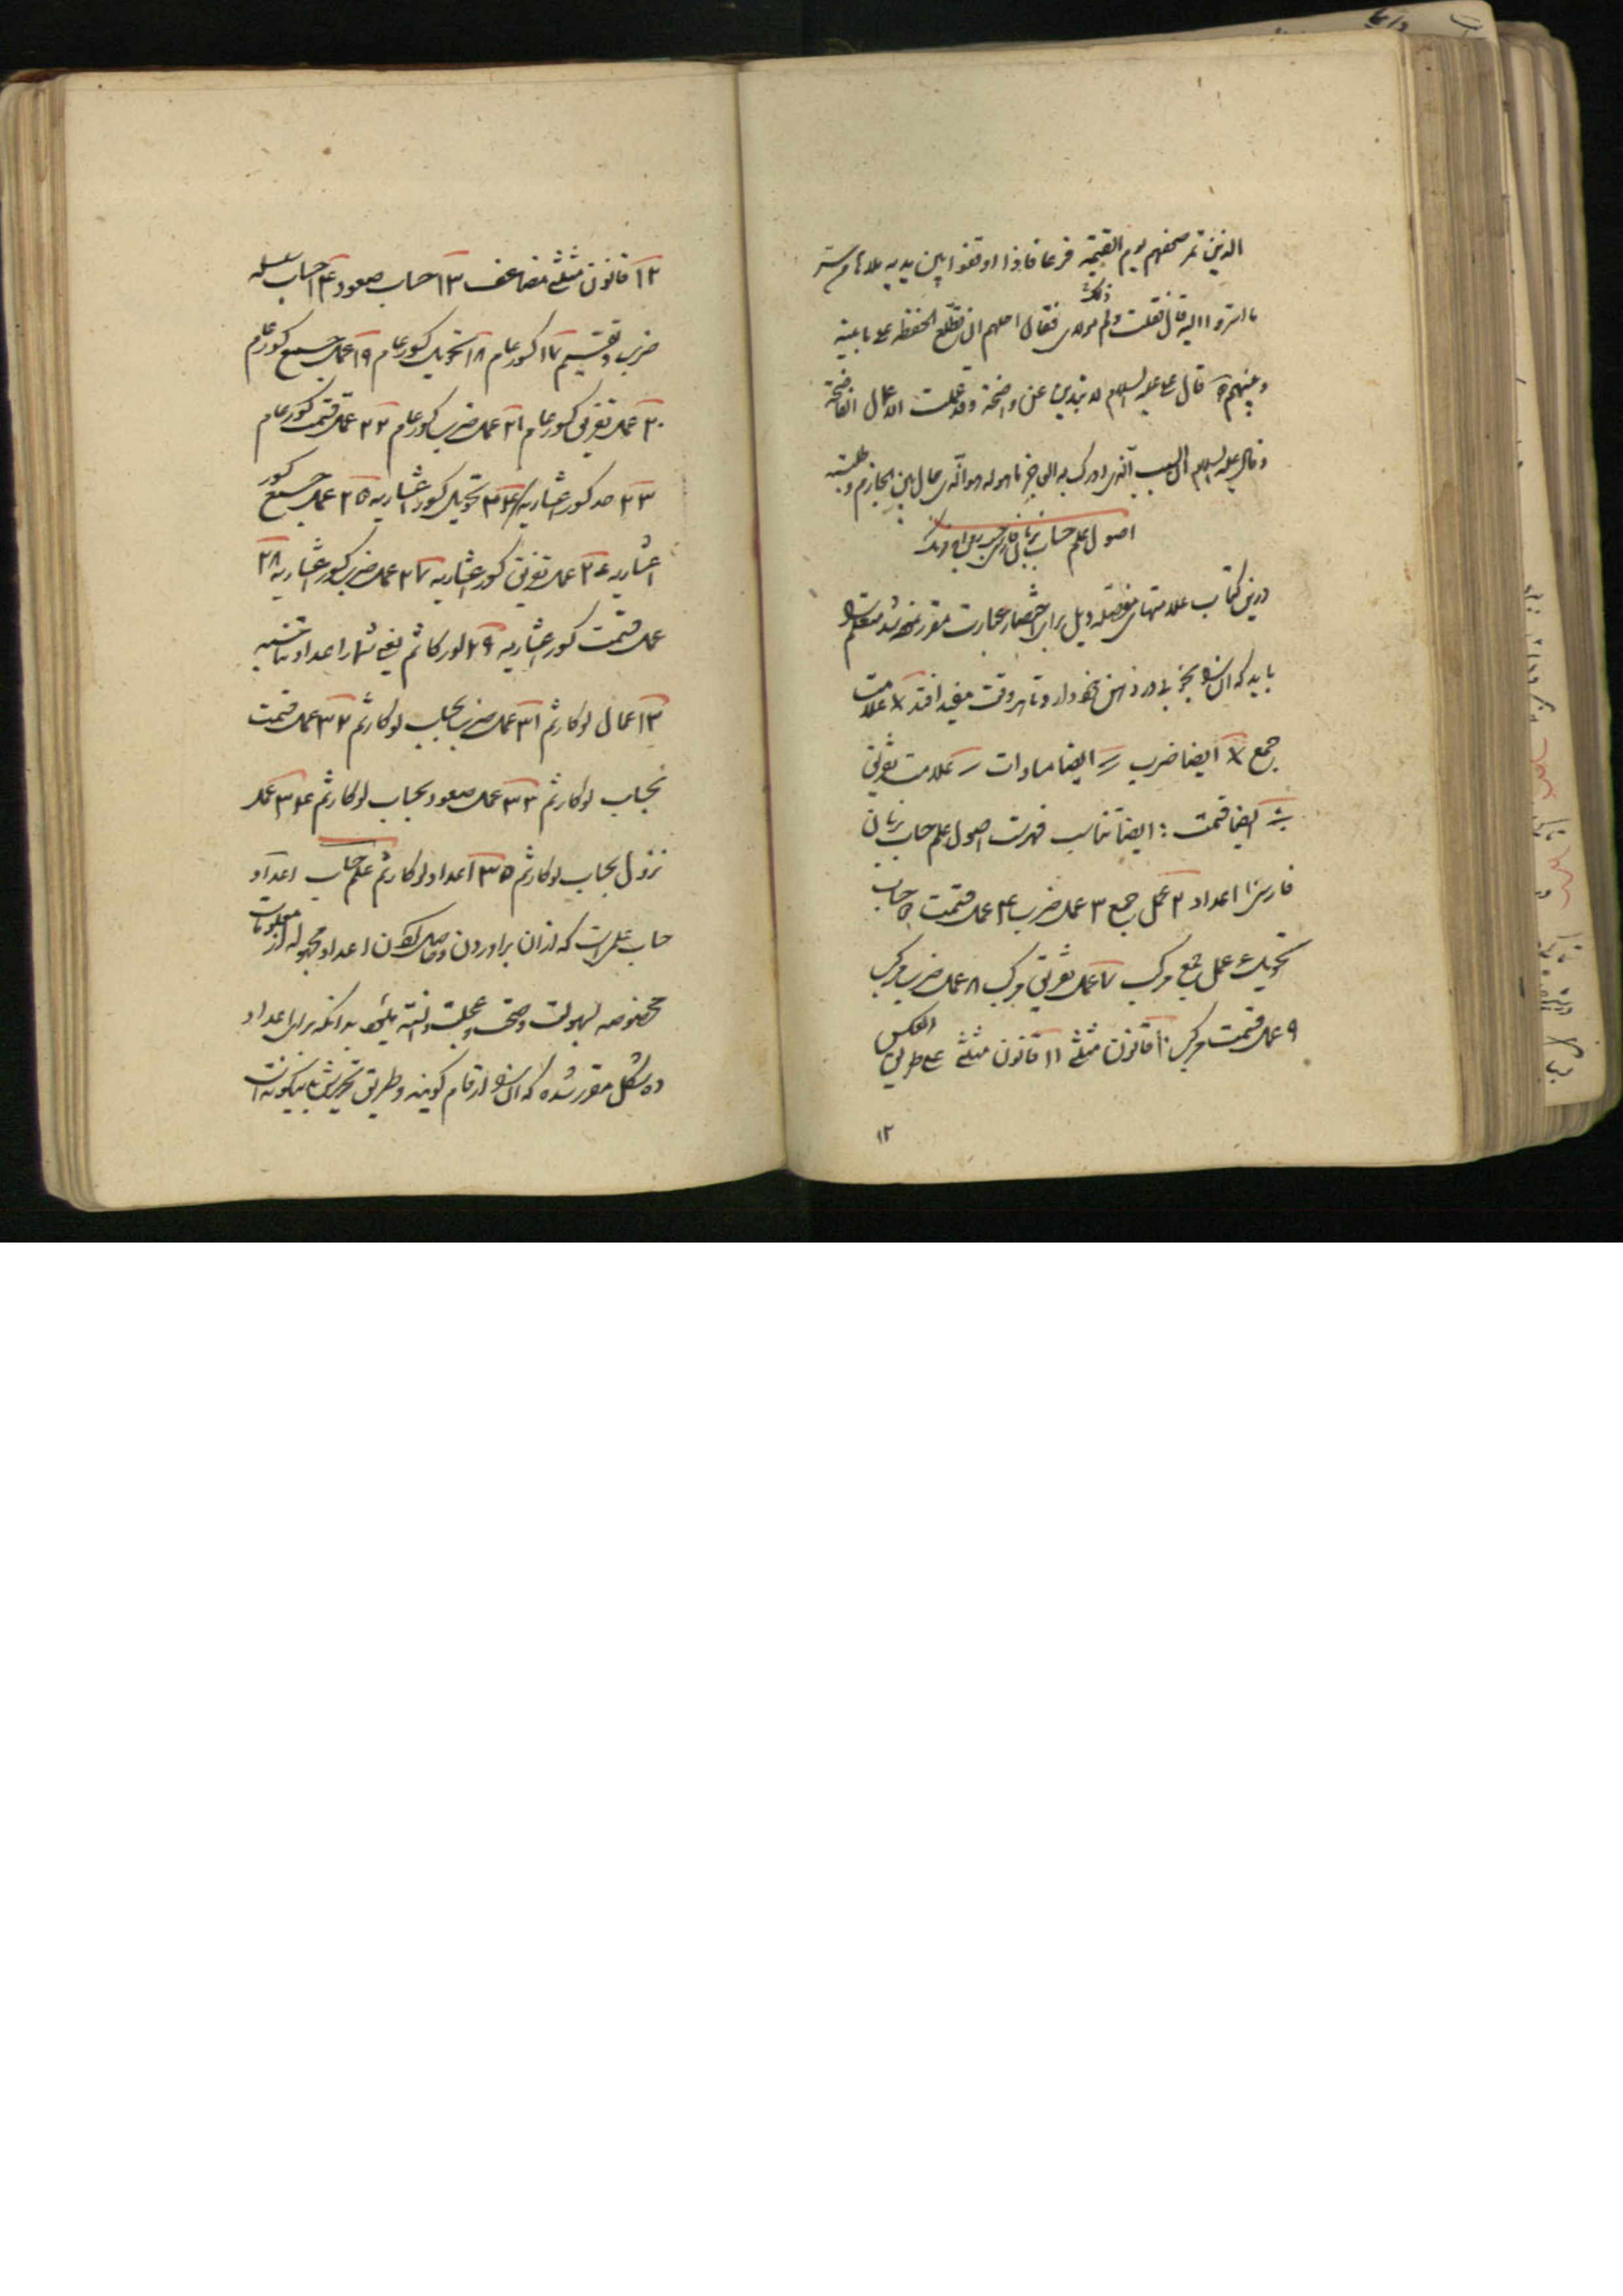 الذین تمر صحفهم یوم القیمة فرغا فاذا اوقفوا بین یدیه ملاها من ستر
ما استروا الیه قال فقلت ولم ذلک مولای فقال اجلهم ان تطلع الحفظة علی ما بینه
وبینهم قال علی علیه السلام لا تبدین عن واضحة وقد عملت الاعمال الفاضحة
وقال علیه السلام
اصول علم حساب بزبان فارسی
درین کتاب علامتهای مفصله ذیل برای اختصار عبارت مقرر نموده شد متعلم را
باید که آن را بخوبی در ذهن خود دارد تا هر وقت مفید افتد × علامت
جمع × ایضا ضرب = ایضا مساوات - علامت تفریق
÷ ایضا قسمت : ایضا تناسب فهرست اصول علم حساب بزبان
فارسی ۱ اعداد ۲ عمل جمع ۳ عمل ضرب ۴ عمل قسمت ۵ حساب
تحویل ۶ عمل جمع مرکب ۷ عمل تفریق مرکب ۸ عمل ضرب مرکب
۹ عمل قسمت مرکب ۱۰ قانون مثلثی ۱۱ قانون مثلثی علی طریق العکس
۱۲
۱۲ قانون مثلثی مضاعف ۱۳ حساب صعود ۱۴ حساب سلسله
ضرب و تقسیم ۱۷ کسور عام ۱۸ تحویل کسور عام ۱۹ عمل جمع کسور عام
۲۰ عمل تفریق کسور عام ۲۱ عمل ضرب کسور عام ۲۲ عمل قسمت کسور عام
۲۳ حد کسور اعشاریه ۲۴ تحویل کسور اعشاریه ۲۵ عمل جمع کسور
اعشاریه ۲۶ عمل تفریق کسور اعشاریه ۲۷ عمل ضرب کسور اعشاریه ۲۸
عمل قسمت کسور اعشاریه ۲۹ لورکاثم یعنی شمار اعداد تناسبیه
۳۰ اعمال لوکارثم ۳۱ عمل ضرب بحساب لوکارثم ۳۲ عمل قسمت
بحساب لوکارثم ۳۳ عمل صعود بحساب لوکارثم ۳۴ عمل
نزول بحساب لوکارثم ۳۵ اعداد لوکارثم علم حساب اعداد
حساب علمی است که از آن برآوردن و حاصل کردن اعداد مجهوله از معلومات
مخصوصه بسهولت و صحت و عجلت دانسته میشود بدانکه برای اعداد
ده شکل مقرر شده که آن را ارقام گویند و طریق تحریرش باینگونه است